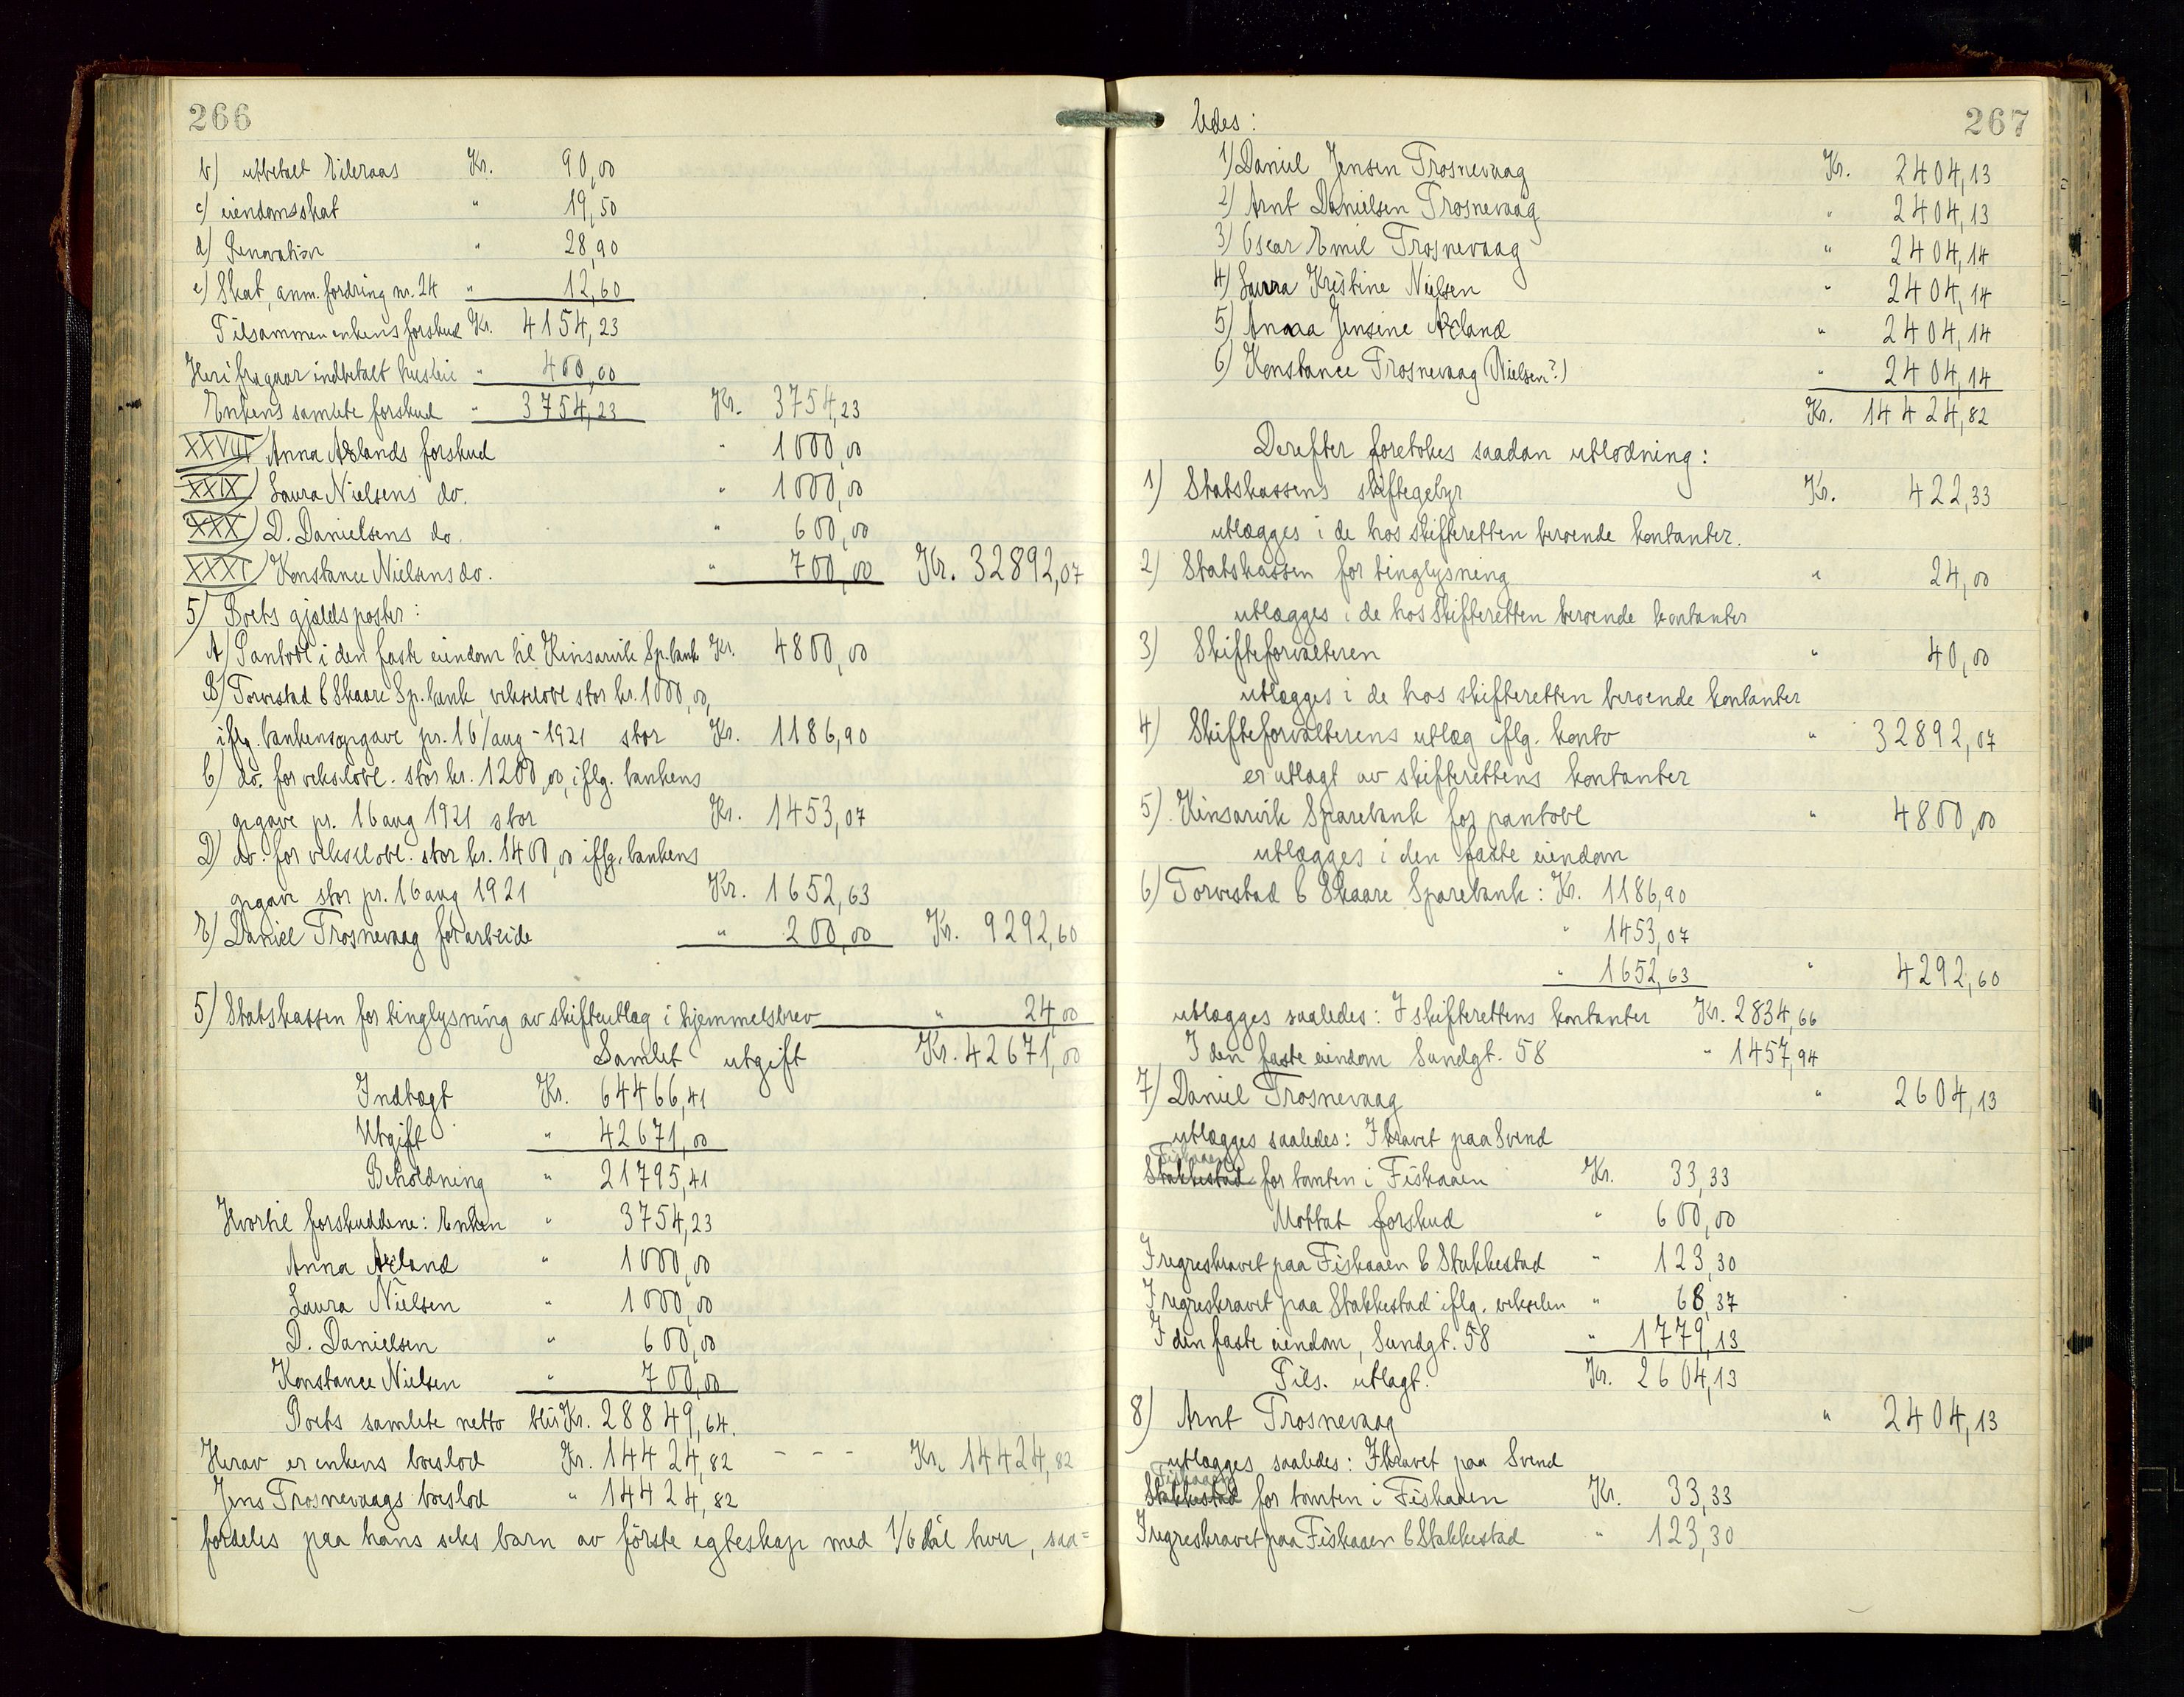 266
b) utbetalt Eileraas Kr. 90,00
c) eiendomsskat " 19,50
d) Renovation " 28,90
e) Skat, anm. fordring nr. 24 " 12,60
Tilsammen enkens forskud Kr. 4154,23
Heri fragaar indbetalt husleie " 400,00
Enkens samlede forskud " 3754,23 Kr. 3754,23
XXVIII) Anna Axlands forskud " 1000,00
XXIX) Laura Nielsens do. " 1000,00
XXX) D. Danielsens do. " 600,00
XXXI) Konstance Nielsens do. " 700,00 Kr. 32892,07
5) Boets gjældsposter:
A) Pantobl i den faste eiendom til Kinsarvik Sp.bank Kr. 4800,00
B) Torvestad & Skaare Sp.bank, vekselobl stor kr. 1000,00,
iflg. bankens opgave pr. 16/aug - 1921 stor Kr. 1186,90
C) do. for vekselobl. stor kr. 1200,00, iflg. bankens
opgave pr. 16 aug 1921 stor Kr. 1453,07
D) do. for vekselobl. stor kr. 1400,00 iflg. bankens
opgave stor pr. 16 aug 1921 Kr. 1652,63
E) Daniel Trosnevaag for arbeide " 200,00 Kr. 9292,60
5) Statskassen for tinglysning av skifteutlæg i hjemmelsbrev " 24,00
Samlet utgift Kr. 42671,00
Indtægt Kr. 64466,41
Utgift " 42671,00
Beholdning " 21795,41
Hvortil forskuddene: Enken " 3754,23
Anna Axland " 1000,00
Laura Nielsen " 1000,00
D. Danielsen " 600,00
Konstance Nielsen " 700,00
Boets samlete netto blir Kr. 28849,64.
Herav er enkens boeslod Kr. 14424,82 - - - Kr. 14424,82
Jens Trosnevaags boeslod " 14424,82
fordeles paa hans seks barn av første egteskap med 1/6 del hver, saa=
267
ledes:
1) Daniel Jensen Trosnevaag Kr. 2404,13
2) Arnt Danielsen Trosnevaag " 2404,13
3) Oscar Emil Trosnevaag " 2404,14
4) Laura Kristine Nielsen " 2404,14
5) Anna Jensine Axland " 2404,14
6) Konstance Trosnevaag (Nielsen?) " 2404,14
Kr. 14424,82
Derefter foretokes saadan utlodning:
1) Statskassens skiftegebyr Kr. 422,33
utlægges i de hos skifteretten beroende kontanter.
2) Statskassen for tinglysning " 24,00
utlægges i de hos skifteretten beroende kontanter
3) Skifteforvalteren " 40,00
utlægges i de hos skifteretten beroende kontanter
4) Skifteforvalterens utlæg iflg. konto " 32892,07
er utlagt av skifterettens kontanter
5) Kinsarvik Sparebank for pantobl " 4800,00
utlægges i den faste eiendom
6) Torvestad & Skaare Sparebank: Kr. 1186,90
" 1453,07
" 1652,63 " 4292,60
utlægges saaledes: I skifterettens kontanter Kr. 2834,66
I den faste eiendom Sundgt. 58 " 1457,94
7) Daniel Trosnevaag " 2604,13
utlægges saaledes: I kravet paa Svend
Fiskaaen
Stakkestad for tomten i Fiskaaen Kr. 33,33
Mottat forskud " 600,00
I regreskravet paa Fiskaaen & Stakkestad " 123,30
I regreskravet paa Stakkestad iflg. vekselen " 68,37
I den faste eiendom, Sundgt. 58 " 1779,13
Tils. utlagt. Kr. 2604,13
8) Arnt Trosnevaag " 2404,13
utlægges saaledes: I kravet paa Svend
Fiskaaen
Stakkestad for tomten i Fiskaaen Kr. 33,33
I regreskravet paa Fiskaaen & Stakkestad " 123,30